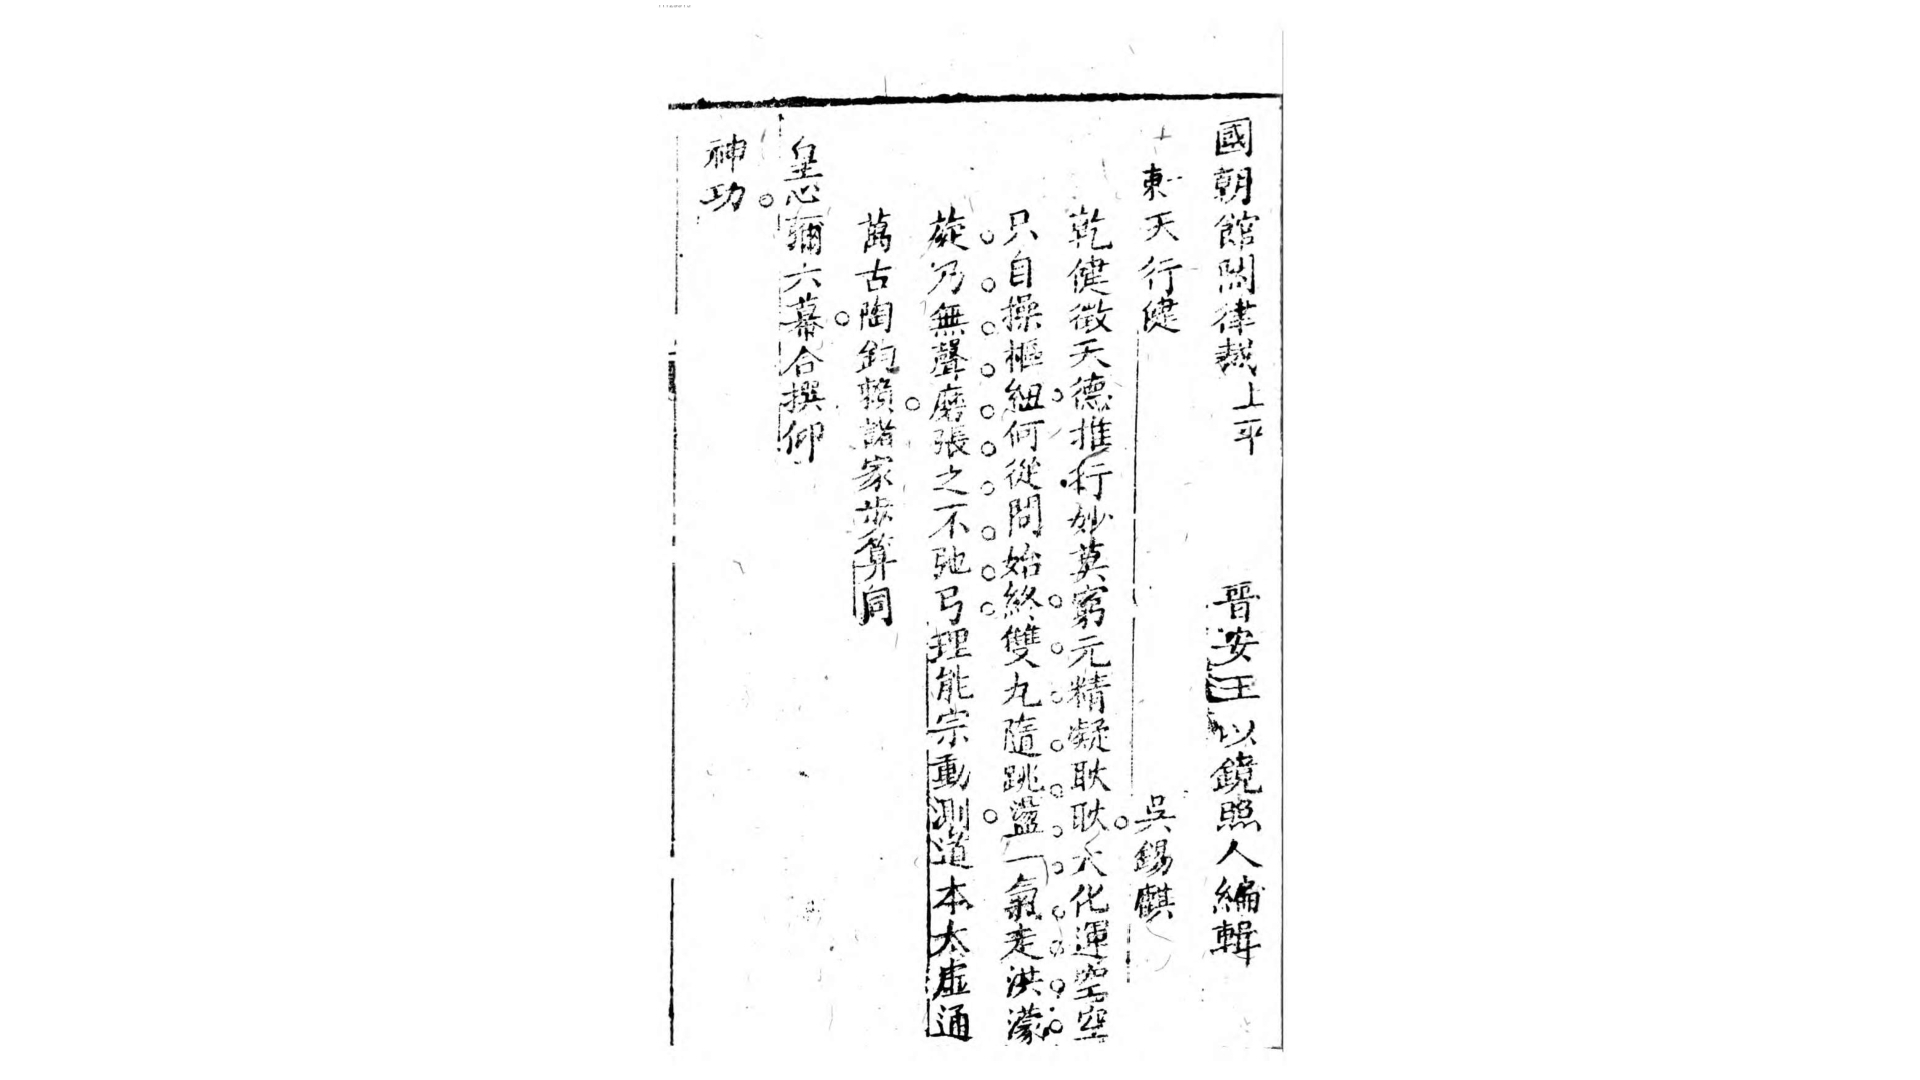 國朝館閣律裁上平 晉安王以鏡照人編輯
東 天行健 吳錫麒
乾健徵天德推行妙莫窮元精凝耿耿大化運空空
只自操樞紐何從問始終雙丸隨跳盪一氣走洪濛
旋乃無聲磨張之不弛弓理能宗動測道本太虛通
萬古陶鈞賴諸家步算同
皇心彌六幕合撰仰
神功